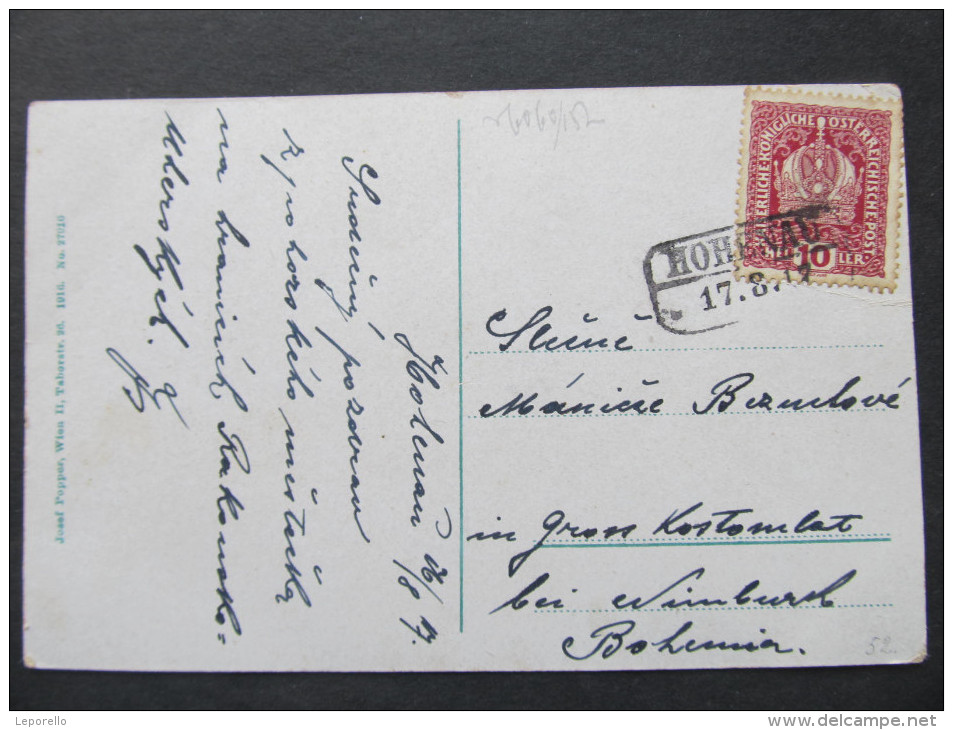 Hohenau 16/8 17.
Srdečný pozdrav
z pohorského městečka
na hranicích Rakousko=
Uherských.
Slečně
Mánice
in Gross Kostomlat
bei Nimburk
Bohemia.
KAISERLICHE·KÖNIGLICHE ÖSTERREICHISCHE·POST
10
HELLER
HOHENAU
17.8.17
Josef Popper, Wien II, Taborstr. 26. 1916. No. 27010
52.
Leporello
www.delcampe.net